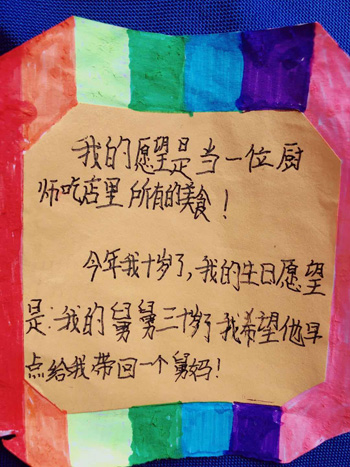 我的愿望是当一位厨
师吃店里所有的美食！
今年我十岁了，我的生日愿望
是：我的舅舅三十岁了我希望他早
点给我带回一个舅妈！